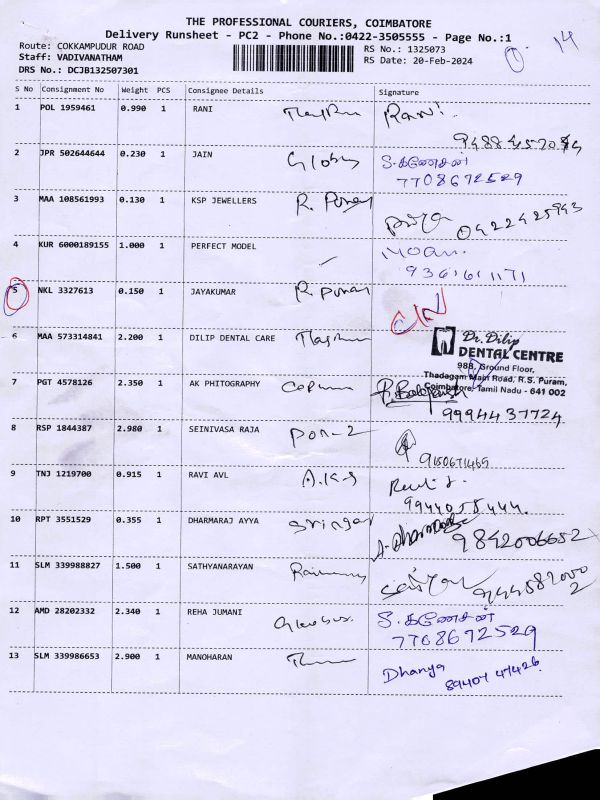 THE PROFESSIONAL COURIERS, COIMBATORE
Delivery Runsheet - PC2 - Phone No.:0422-3505555 - Page No.:1
Route: COKKAMPUDUR ROAD RS No.: 1325073
Staff: VADIVANATHAM RS Date: 20-Feb-2024
DRS No.: DCJB132507301
14
S No Consignment No Weight PCS Consignee Details Signature
1 POL 1959461 0.990 1 RANI Rani
2 JPR 502644644 0.230 1 JAIN Globus S.கணேசன்
7708672529
3 MAA 108561993 0.130 1 KSP JEWELLERS R. Puram
4 KUR 6000189155 1.000 1 PERFECT MODEL
5 NKL 3327613 0.150 1 JAYAKUMAR R. puram
6 MAA 573314841 2.200 1 DILIP DENTAL CARE
Dr. Dilip
DENTAL CENTRE
98B, Ground Floor,
Thadagam Main Road, R.S. Puram,
Coimbatore, Tamil Nadu - 641 002
7 PGT 4578126 2.350 1 AK PHITOGRAPHY
9994437724
8 RSP 1844387 2.980 1 SEINIVASA RAJA
9150671465
9 TNJ 1219700 0.915 1 RAVI AVL
9944055444.
10 RPT 3551529 0.355 1 DHARMARAJ AYYA Sringar
9842006652
11 SLM 339988827 1.500 1 SATHYANARAYAN
12 AMD 28202332 2.340 1 REHA JUMANI S.கணேசன்
7708672529
13 SLM 339986653 2.900 1 MANOHARAN Dhanya
89407 47426